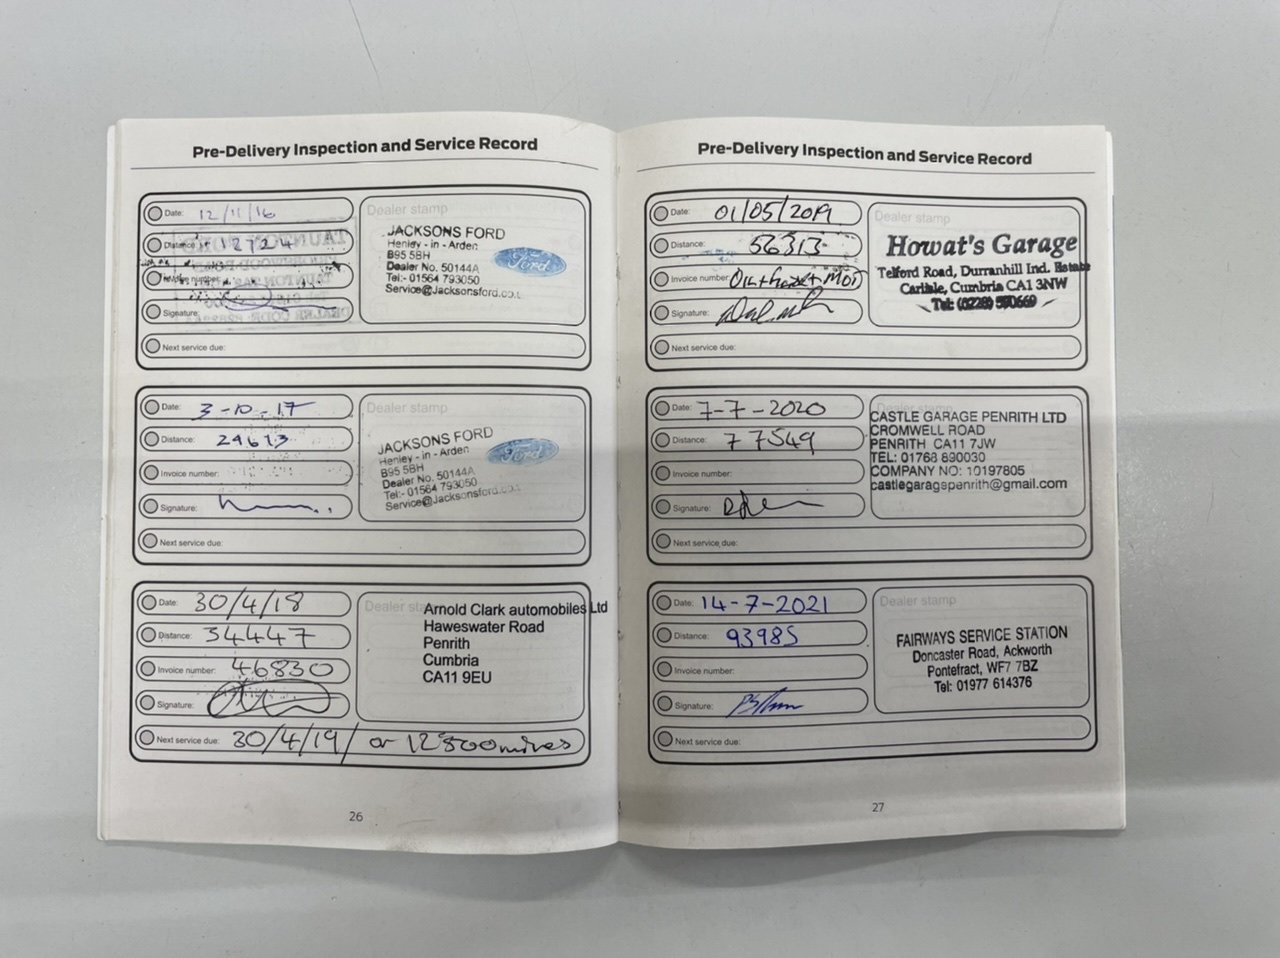 Pre-Delivery Inspection and Service Record
Date: 12/11/16
Distance: 12724
Signature:
Next service due:
Dealer stamp
JACKSONS FORD
Henley - in - Arden
B95 5BH
Dealer No. 50144A
Tel:- 01564 793050
Service@Jacksonsford.co.
Ford
Date: 3-10-17
Distance: 29613
Invoice number:
Signature:
Next service due:
Dealer stamp
JACKSONS FORD
Henley - in - Arden
B95 5BH
Dealer No. 50144A
Tel:- 01564 793050
Service@Jacksonsford.co.
Ford
Date: 30/4/18
Distance: 34447
Invoice number: 46830
Signature:
Next service due: 30/4/19/ or 12500 miles
Dealer stamp
Arnold Clark automobiles Ltd
Haweswater Road
Penrith
Cumbria
CA11 9EU
26
Pre-Delivery Inspection and Service Record
Date: 01/05/2019
Distance: 56313
Invoice number: MOT
Signature:
Next service due:
Dealer stamp
Howat's Garage
Telford Road, Durranhill Ind. Estate
Carlisle, Cumbria CA1 3NW
Tel: (0228)
Date: 7-7-2020
Distance: 77549
Invoice number:
Signature:
Next service due:
Dealer stamp
CASTLE GARAGE PENRITH LTD
CROMWELL ROAD
PENRITH CA11 7JW
TEL: 01768 890030
COMPANY NO: 10197805
castlegaragepenrith@gmail.com
Date: 14-7-2021
Distance: 93985
Invoice number:
Signature:
Next service due:
Dealer stamp
FAIRWAYS SERVICE STATION
Doncaster Road, Ackworth
Pontefract, WF7 7BZ
Tel: 01977 614376
27